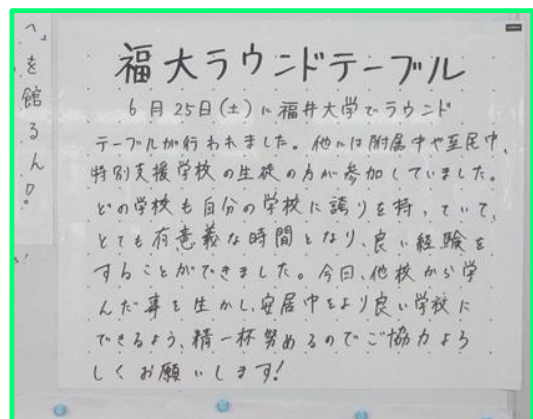 福大ラウンドテーブル
6月25日(土)に福井大学でラウンド
テーブルが行われました。他には附属中や至民中、
特別支援学校の生徒の方が参加していました。
どの学校も自分の学校に誇りを持っていて、
とても有意義な時間となり、良い経験を
することができました。今日、他校から学
んだ事を生かし、安居中をより良い学校に
できるよう、精一杯努めるのでご協力よろ
しくお願いします!
へ
を
館
る
ん
!